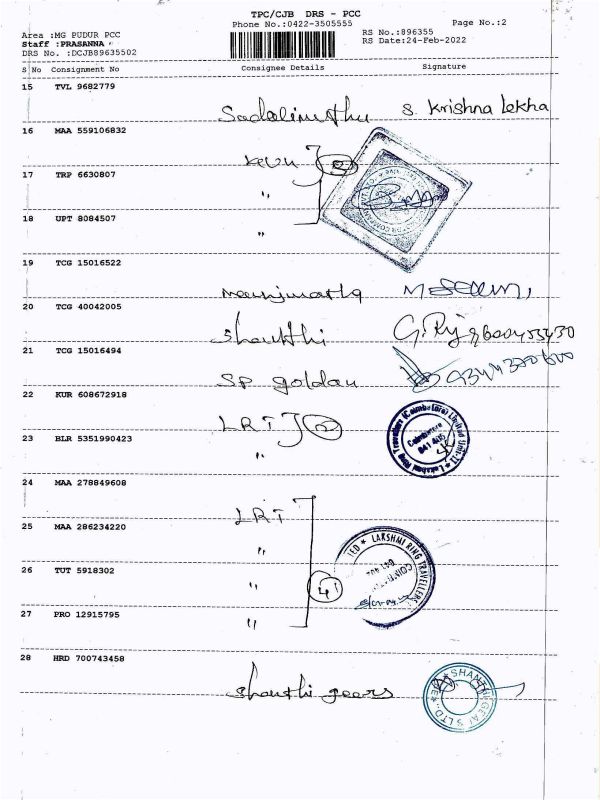 TPC/CJB DRS - PCC
Phone No.:0422-3505555
Page No.:2
Area :MG PUDUR PCC
RS No.:896355
Staff :PRASANNA
RS Date:24-Feb-2022
DRS No. :DCJB89635502
S No Consignment No Consignee Details Signature
15 TVL 9682779
S. Krishna Lekha
16 MAA 559106832
17 TRP 6630807
2
"
18 UPT 8084507
"
19 TCG 15016522
20 TCG 40042005
Shanthi
21 TCG 15016494
SP goldan
22 KUR 608672918
LRT 2
23 BLR 5351990423
"
24 MAA 278849608
LRT
25 MAA 286234220
"
26 TUT 5918302
" 4
LAKSHMI RING TRAVELLERS
27 PRO 12915795
"
28 HRD 700743458
Shanthi gears